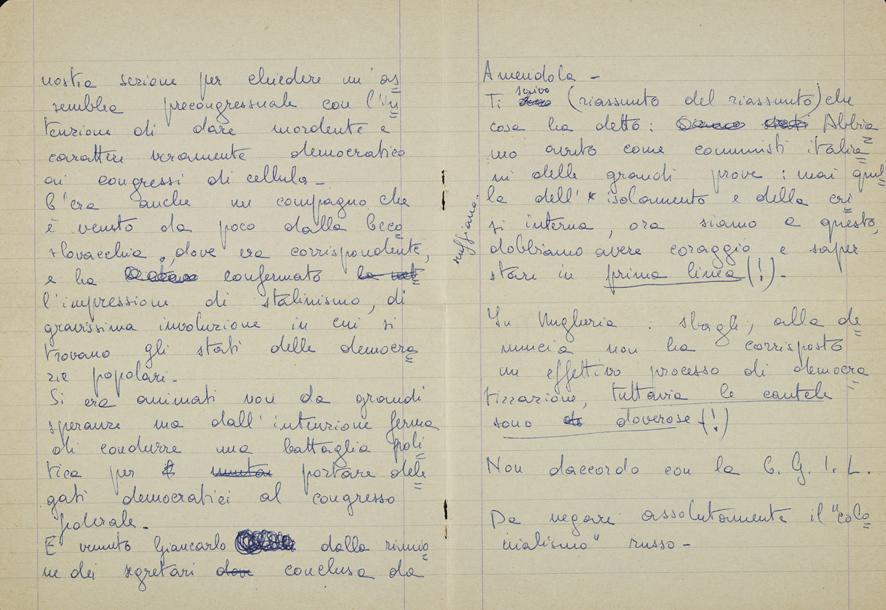 nostra sezione per chiedere un'as=
semblea precongressuale con l'in=
tenzione di dare mordente e
carattere veramente democratico
ai congressi di cellula_
C'era anche un compagno che
è venuto da poco dalla Ceco=
slovacchia, dove era corrispondente,
e ha confermato
l'impressione di stalinismo, di
gravissima involuzione in cui si
trovano gli stati delle democra=
zie popolari_
Si era animati non da grandi
speranze ma dall'intenzione ferma
di condurre una battaglia poli=
tica per portare dele=
gati democratici al congresso
federale_
E' venuto Giancarlo dalla riunio=
ne dei segretari dove conclusa da
Amendola_
Ti scrivo (riassunto del riassunto) che
cosa ha detto: Abbia=
mo avuto come comunisti italia=
ni delle grandi prove: mai quel=
la dell'isolamento e della cri=
si interna, ora siamo a questo,
dobbiamo avere coraggio e saper
stare in prima linea (!)_
ruffiano.
In Ungheria: sbagli, alla de=
nuncia non ha corrisposto
un effettivo processo di democra=
tizzazione, tuttavia le cautele
sono doverose (!)
Non daccordo con la C.G.I.L.
Da negare assolutamente il "colo=
nialismo" russo_